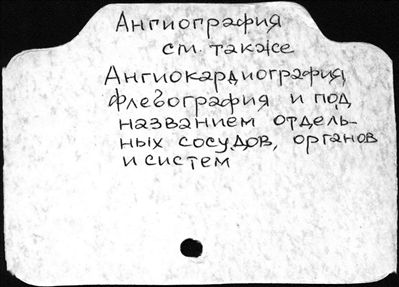 Ангиография
см. также
Ангиокардиография
Флебография и под
названием отдель-
ных сосудов, органов
и систем